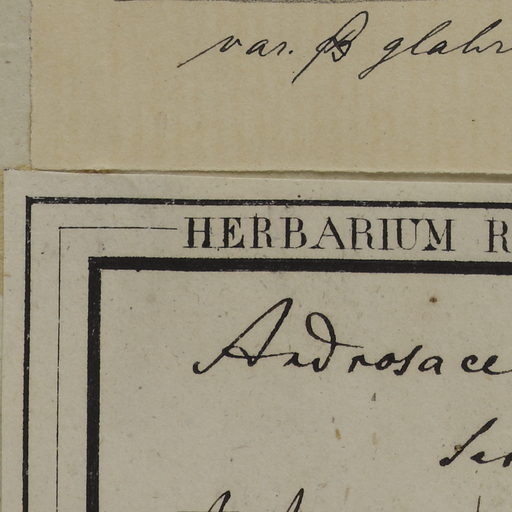 var. β glabr
HERBARIUM R
Androsace